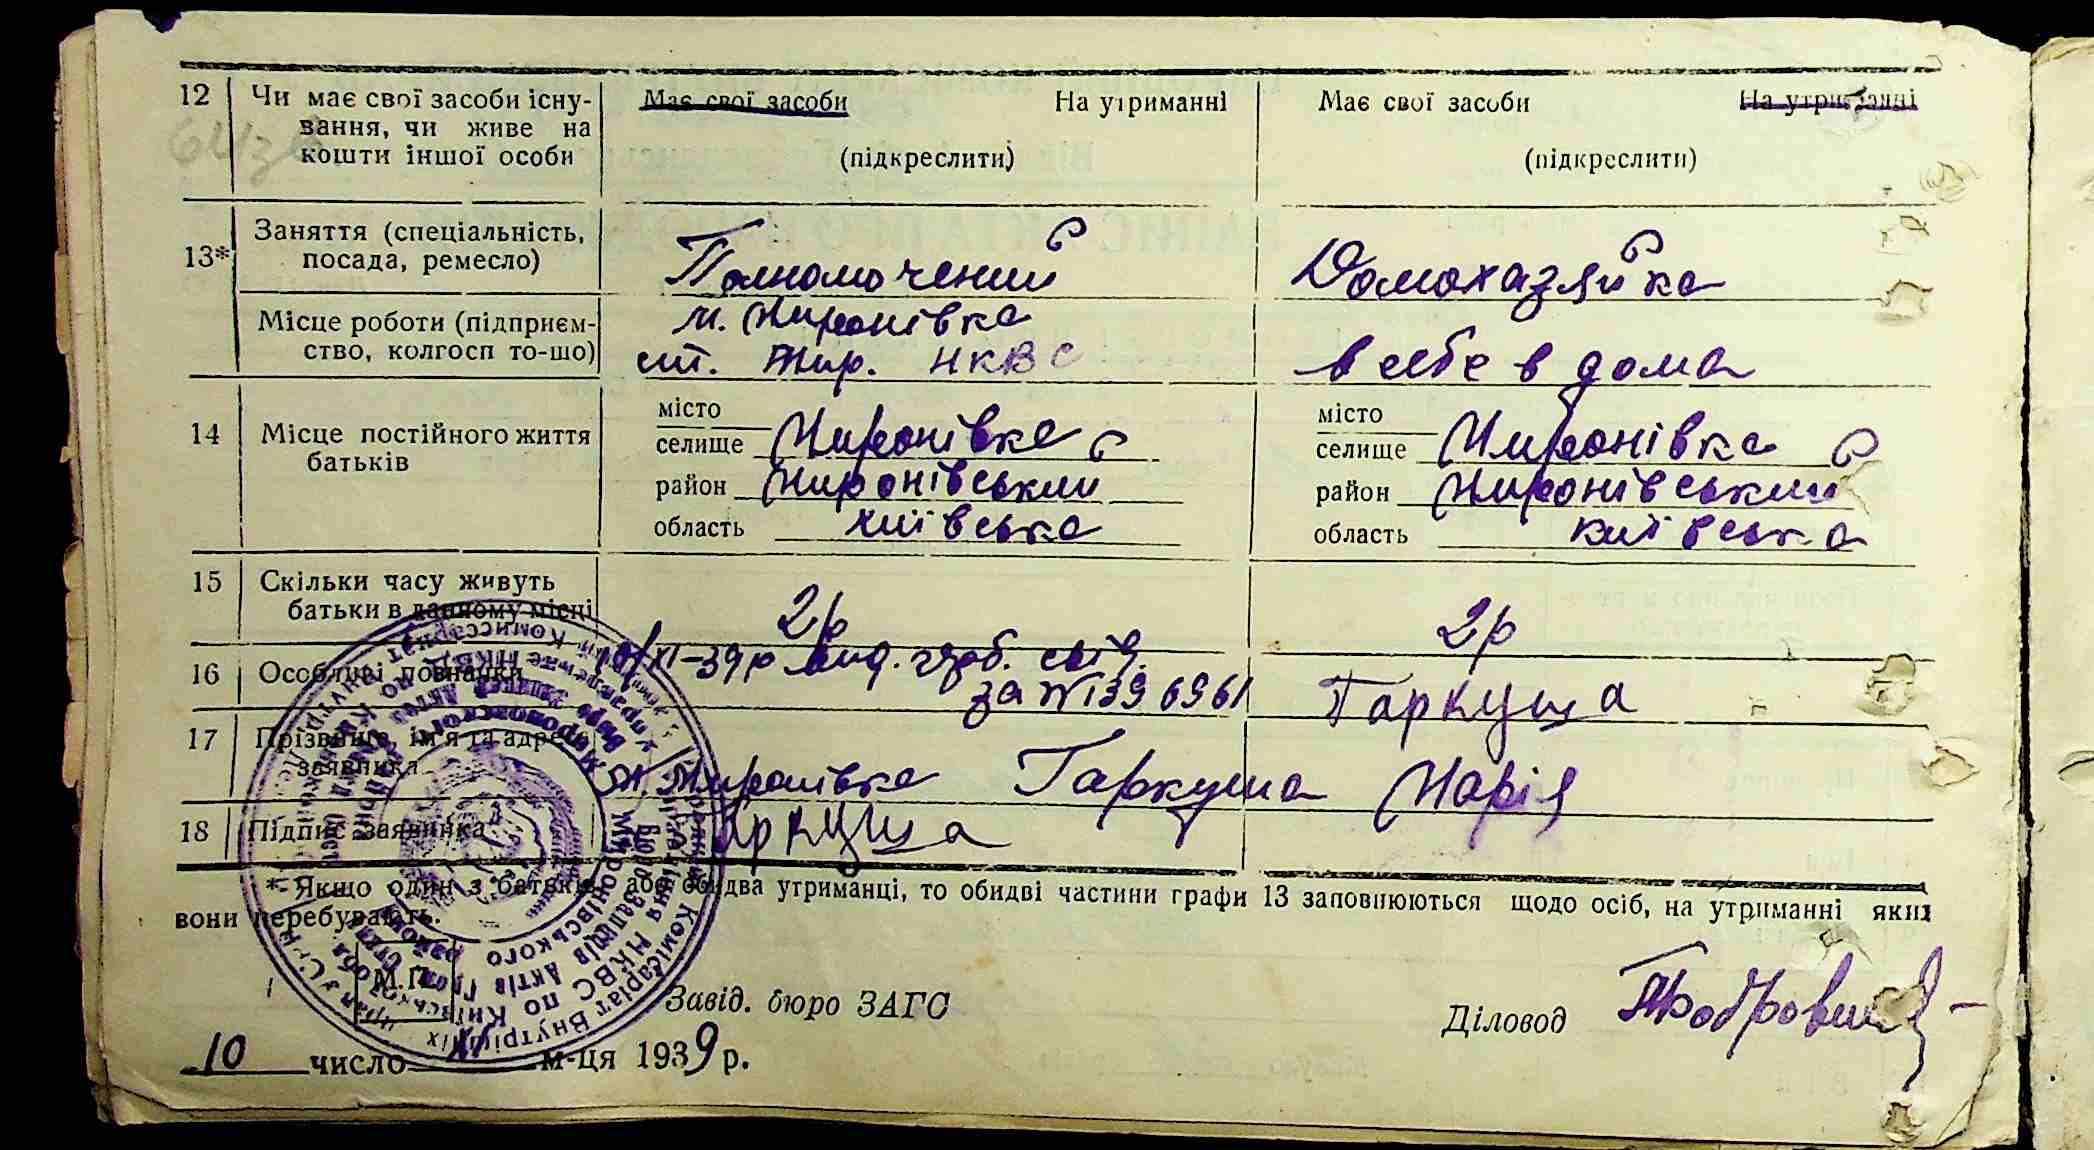 12 Чи має свої засоби існу- Має свої засоби На утриманні Має свої засоби На утриманні
вання, чи живе на
кошти іншої особи (підкреслити) (підкреслити)
13* Заняття (спеціальність, Полномочений Домохазяйка
посада, ремесло)
Місце роботи (підприєм- м. Миронівка
ство, колгосп то-що) ст. Мир. НКВС в себе в дома
14 Місце постійного життя місто місто
батьків селище Миронівка селище Миронівка
район Миронівський район Миронівський
область київська область київська
15 Скільки часу живуть 2р 2р
батьки в данному місці
16 Особливі позначки 10/XI-39р вид. герб. свід.
за №1396961 Гаркуша
17 Прізвище, ім'я та адреса
заявника м. Миронівка Гаркуша Марія
18 Підпис заявника Гаркуша
* Якщо один з батьків, або обидва утриманці, то обидві частини графи 13 заповнюються щодо осіб, на утриманні яких
вони перебувають.
М.П.
Завід. бюро ЗАГС
Діловод
10 число м-ця 1939 р.